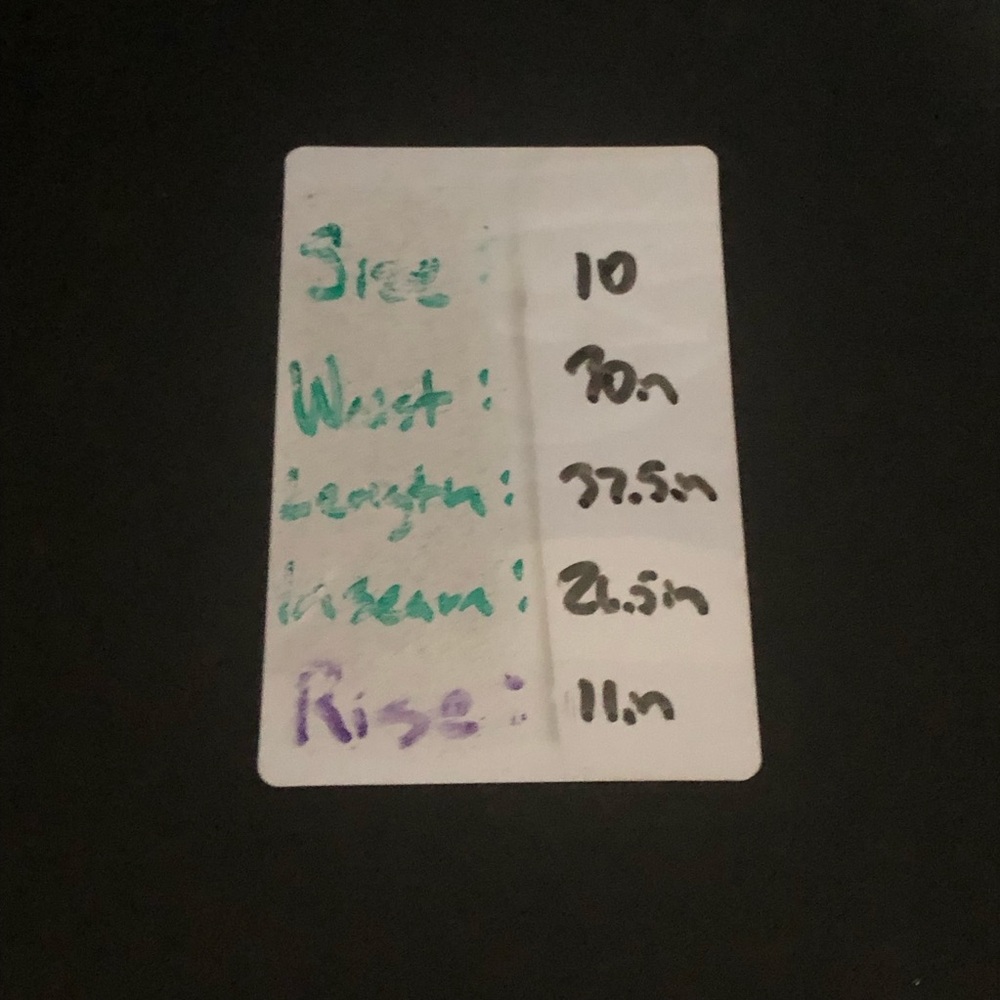 Size: 10
Waist: 30in
Length: 37.5in
Inseam: 26.5in
Rise: 11in